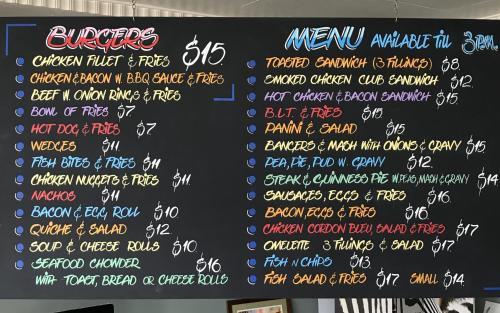 BURGERS
$15
CHICKEN FILLET & FRIES
CHICKEN & BACON W. BBQ SAUCE & FRIES
BEEF W. ONION RINGS & FRIES
BOWL OF FRIES $7
HOT DOG & FRIES $7
WEDGES $11
FISH BITES & FRIES $11
CHICKEN NUGGETS & FRIES $11
NACHOS $11
BACON & EGG ROLL $10
QUICHE & SALAD $12
SOUP & CHEESE ROLLS $10
SEAFOOD CHOWDER $16
WITH TOAST, BREAD OR CHEESE ROLLS
MENU AVAILABLE TILL 3PM
TOASTED SANDWICH (3 FILLINGS) $8
SMOKED CHICKEN CLUB SANDWICH $12
HOT CHICKEN & BACON SANDWICH $15
B.L.T. & FRIES $15
PANINI & SALAD $15
BANGERS & MASH WITH ONIONS & GRAVY $15
PEA, PIE, PUD W. GRAVY $12
STEAK & GUINNESS PIE W. PEAS, MASH & GRAVY $14
SAUSAGES, EGGS & FRIES $16
BACON, EGGS & FRIES $16
CHICKEN CORDON BLEU, SALAD & FRIES $17
OMELETTE 3 FILLINGS & SALAD $17
FISH N CHIPS $13
FISH SALAD & FRIES $17 SMALL $14